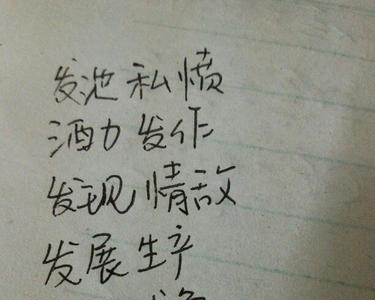 发泄私愤
酒力发作
发现情敌
发展生产